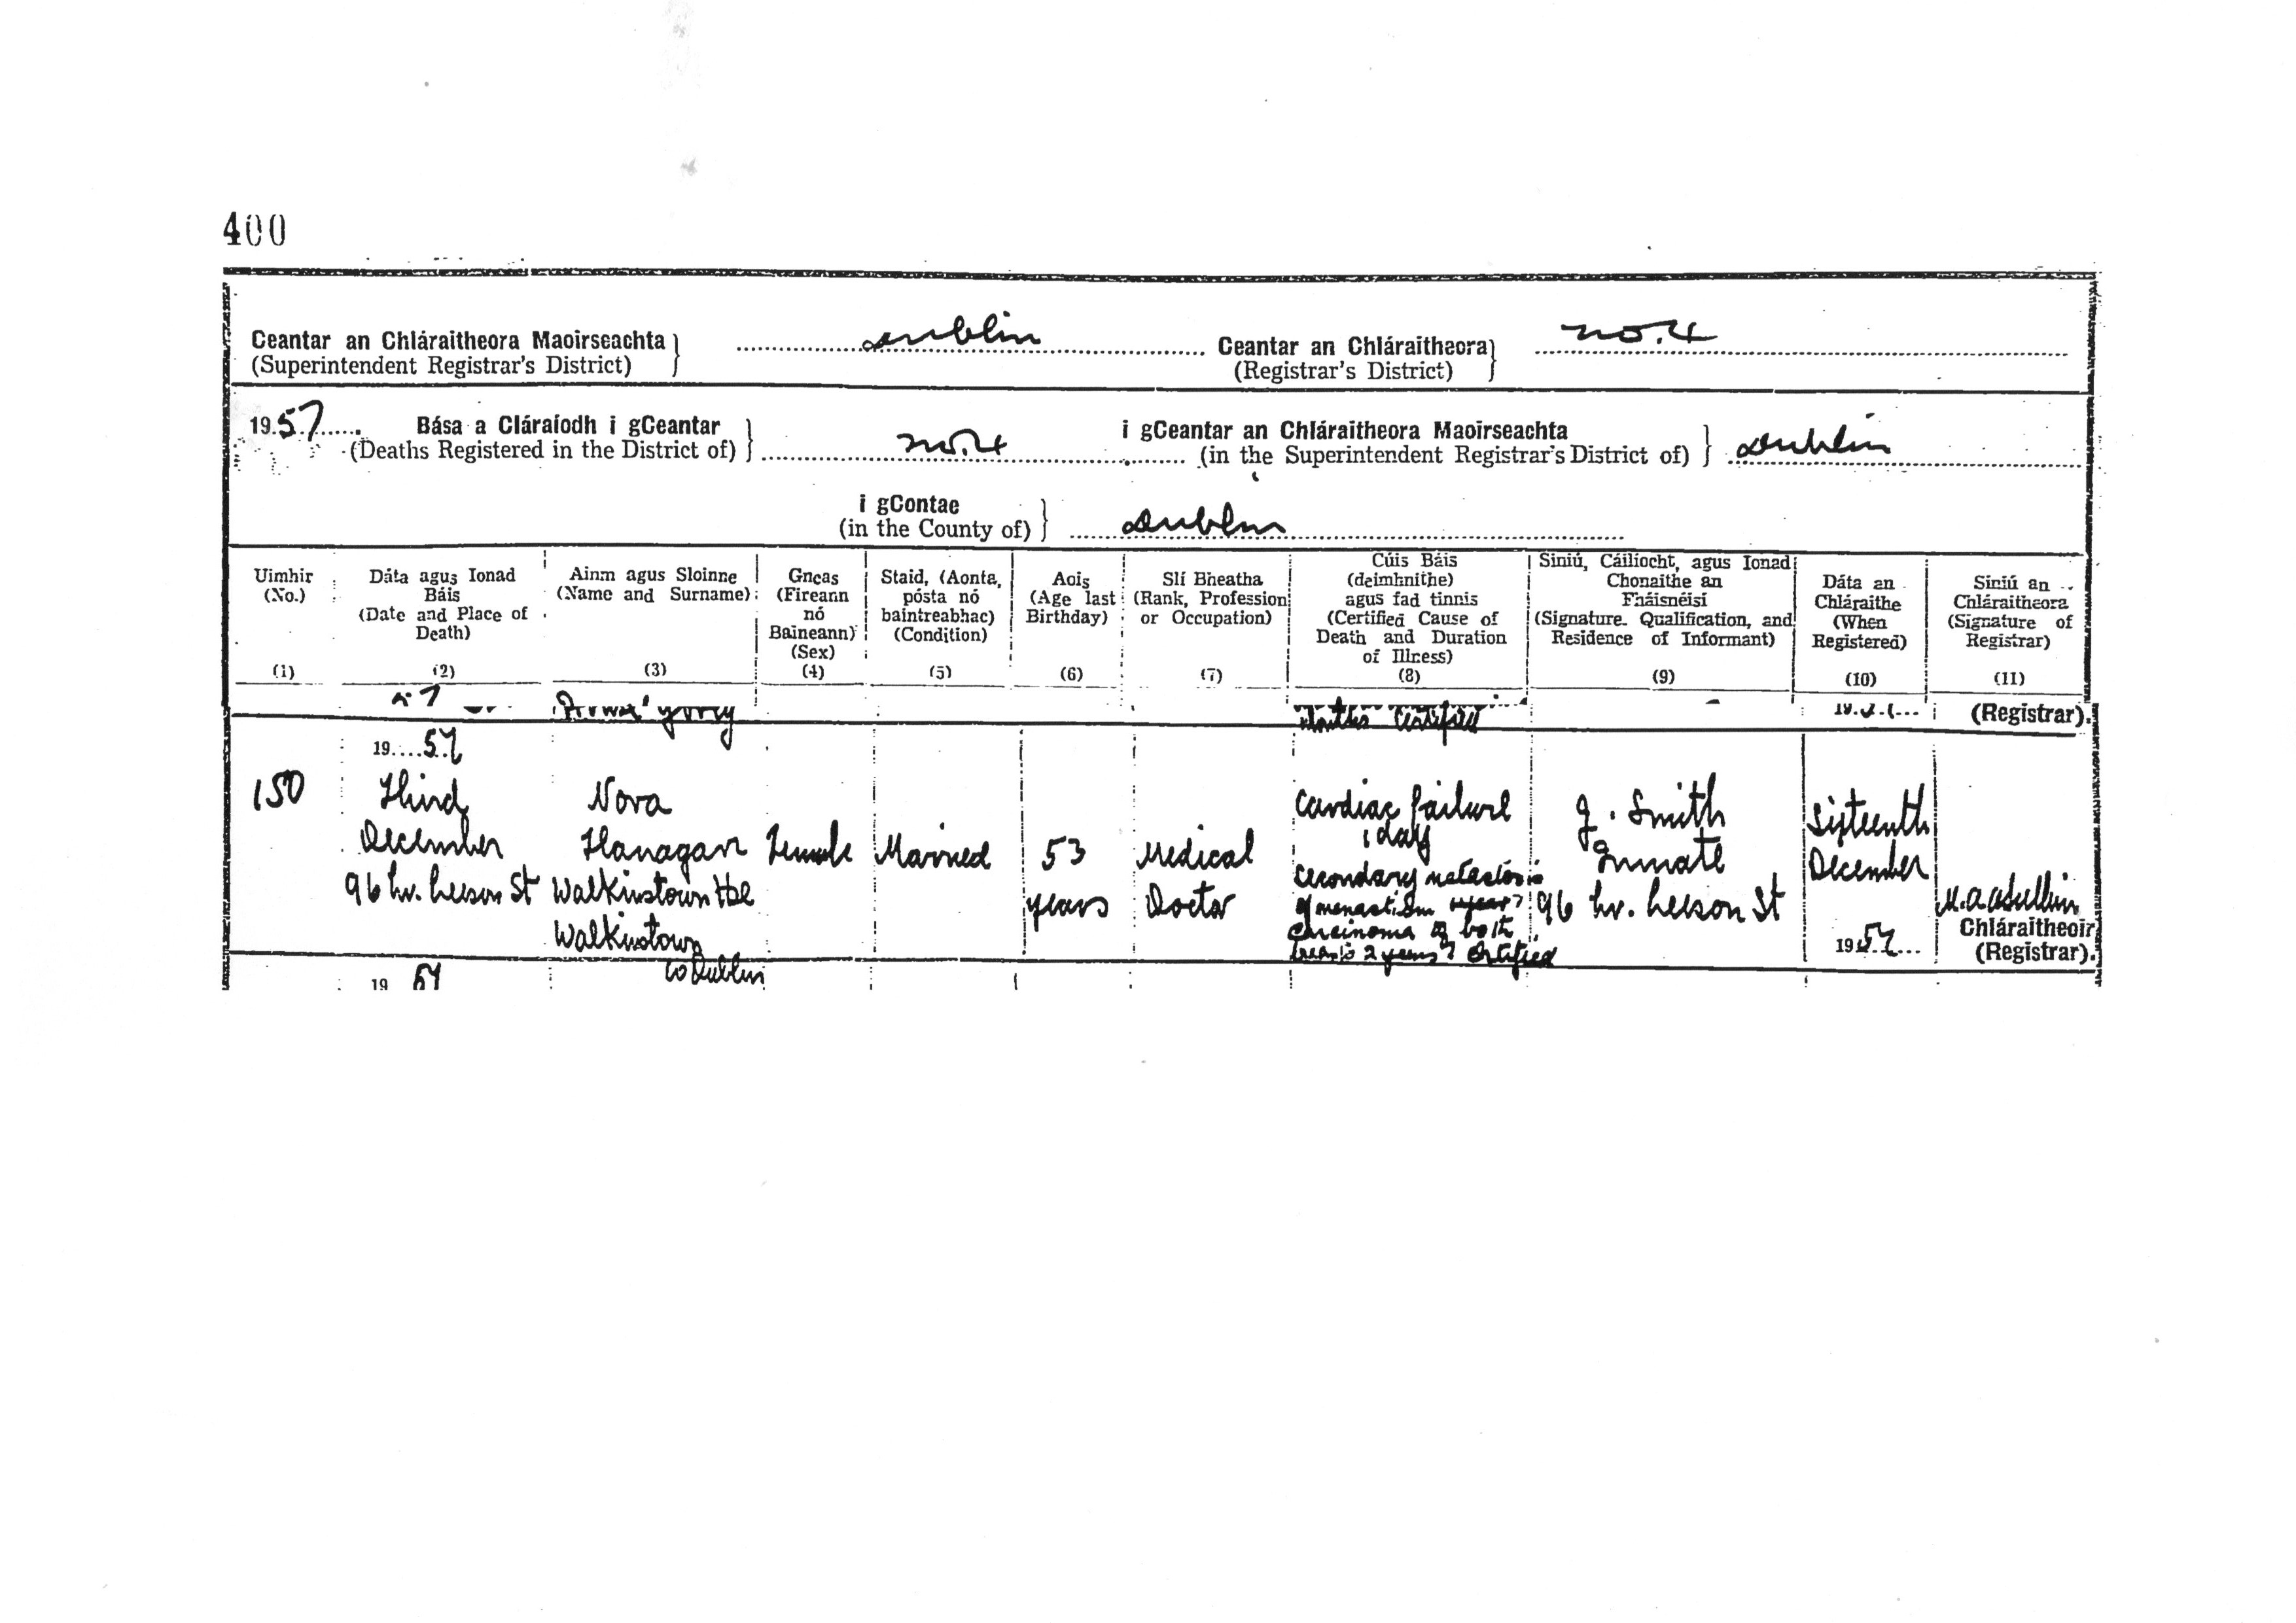 400
Ceantar an Chláraitheora Maoirseachta
(Superintendent Registrar's District)
Dublin
Ceantar an Chláraitheora
(Registrar's District)
no. 4
1957
Bása a Cláraíodh i gCeantar
(Deaths Registered in the District of)
no. 4
i gCeantar an Chláraitheora Maoirseachta
(in the Superintendent Registrar's District of)
Dublin
i gContae
(in the County of)
Dublin
Uimhir
(No.)
(1)
Dáta agus Ionad
Báis
(Date and Place of
Death)
(2)
Ainm agus Sloinne
(Name and Surname)
(3)
Gneas
(Fireann
nó
Baineann)
(Sex)
(4)
Staid, (Aonta,
pósta nó
baintreabhac)
(Condition)
(5)
Aois
(Age last
Birthday)
(6)
Slí Bheatha
(Rank, Profession
or Occupation)
(7)
Cúis Báis
(deimhnithe)
agus fad tinnis
(Certified Cause of
Death and Duration
of Illness)
(8)
Siniú, Cáilíocht, agus Ionad
Chonaithe an
Fháisnéisí
(Signature. Qualification, and
Residence of Informant)
(9)
Dáta an
Chláraithe
(When
Registered)
(10)
Siniú an
Chláraitheora
(Signature of
Registrar)
(11)
Certified
(Registrar).
150
1957
Third
December
96 lr. Leeson St
Nora
Flanagan
Walkinstown Hse
Walkinstown
Co Dublin
Female
Married
53
years
Medical
Doctor
Cardiac failure
1 day
Secondary metastasis
of
carcinoma of both
breasts 2 years Certified
J. Smith
Inmate
96 lr. Leeson St
Sixteenth
December
1957
Chláraitheoir
(Registrar).
19 57